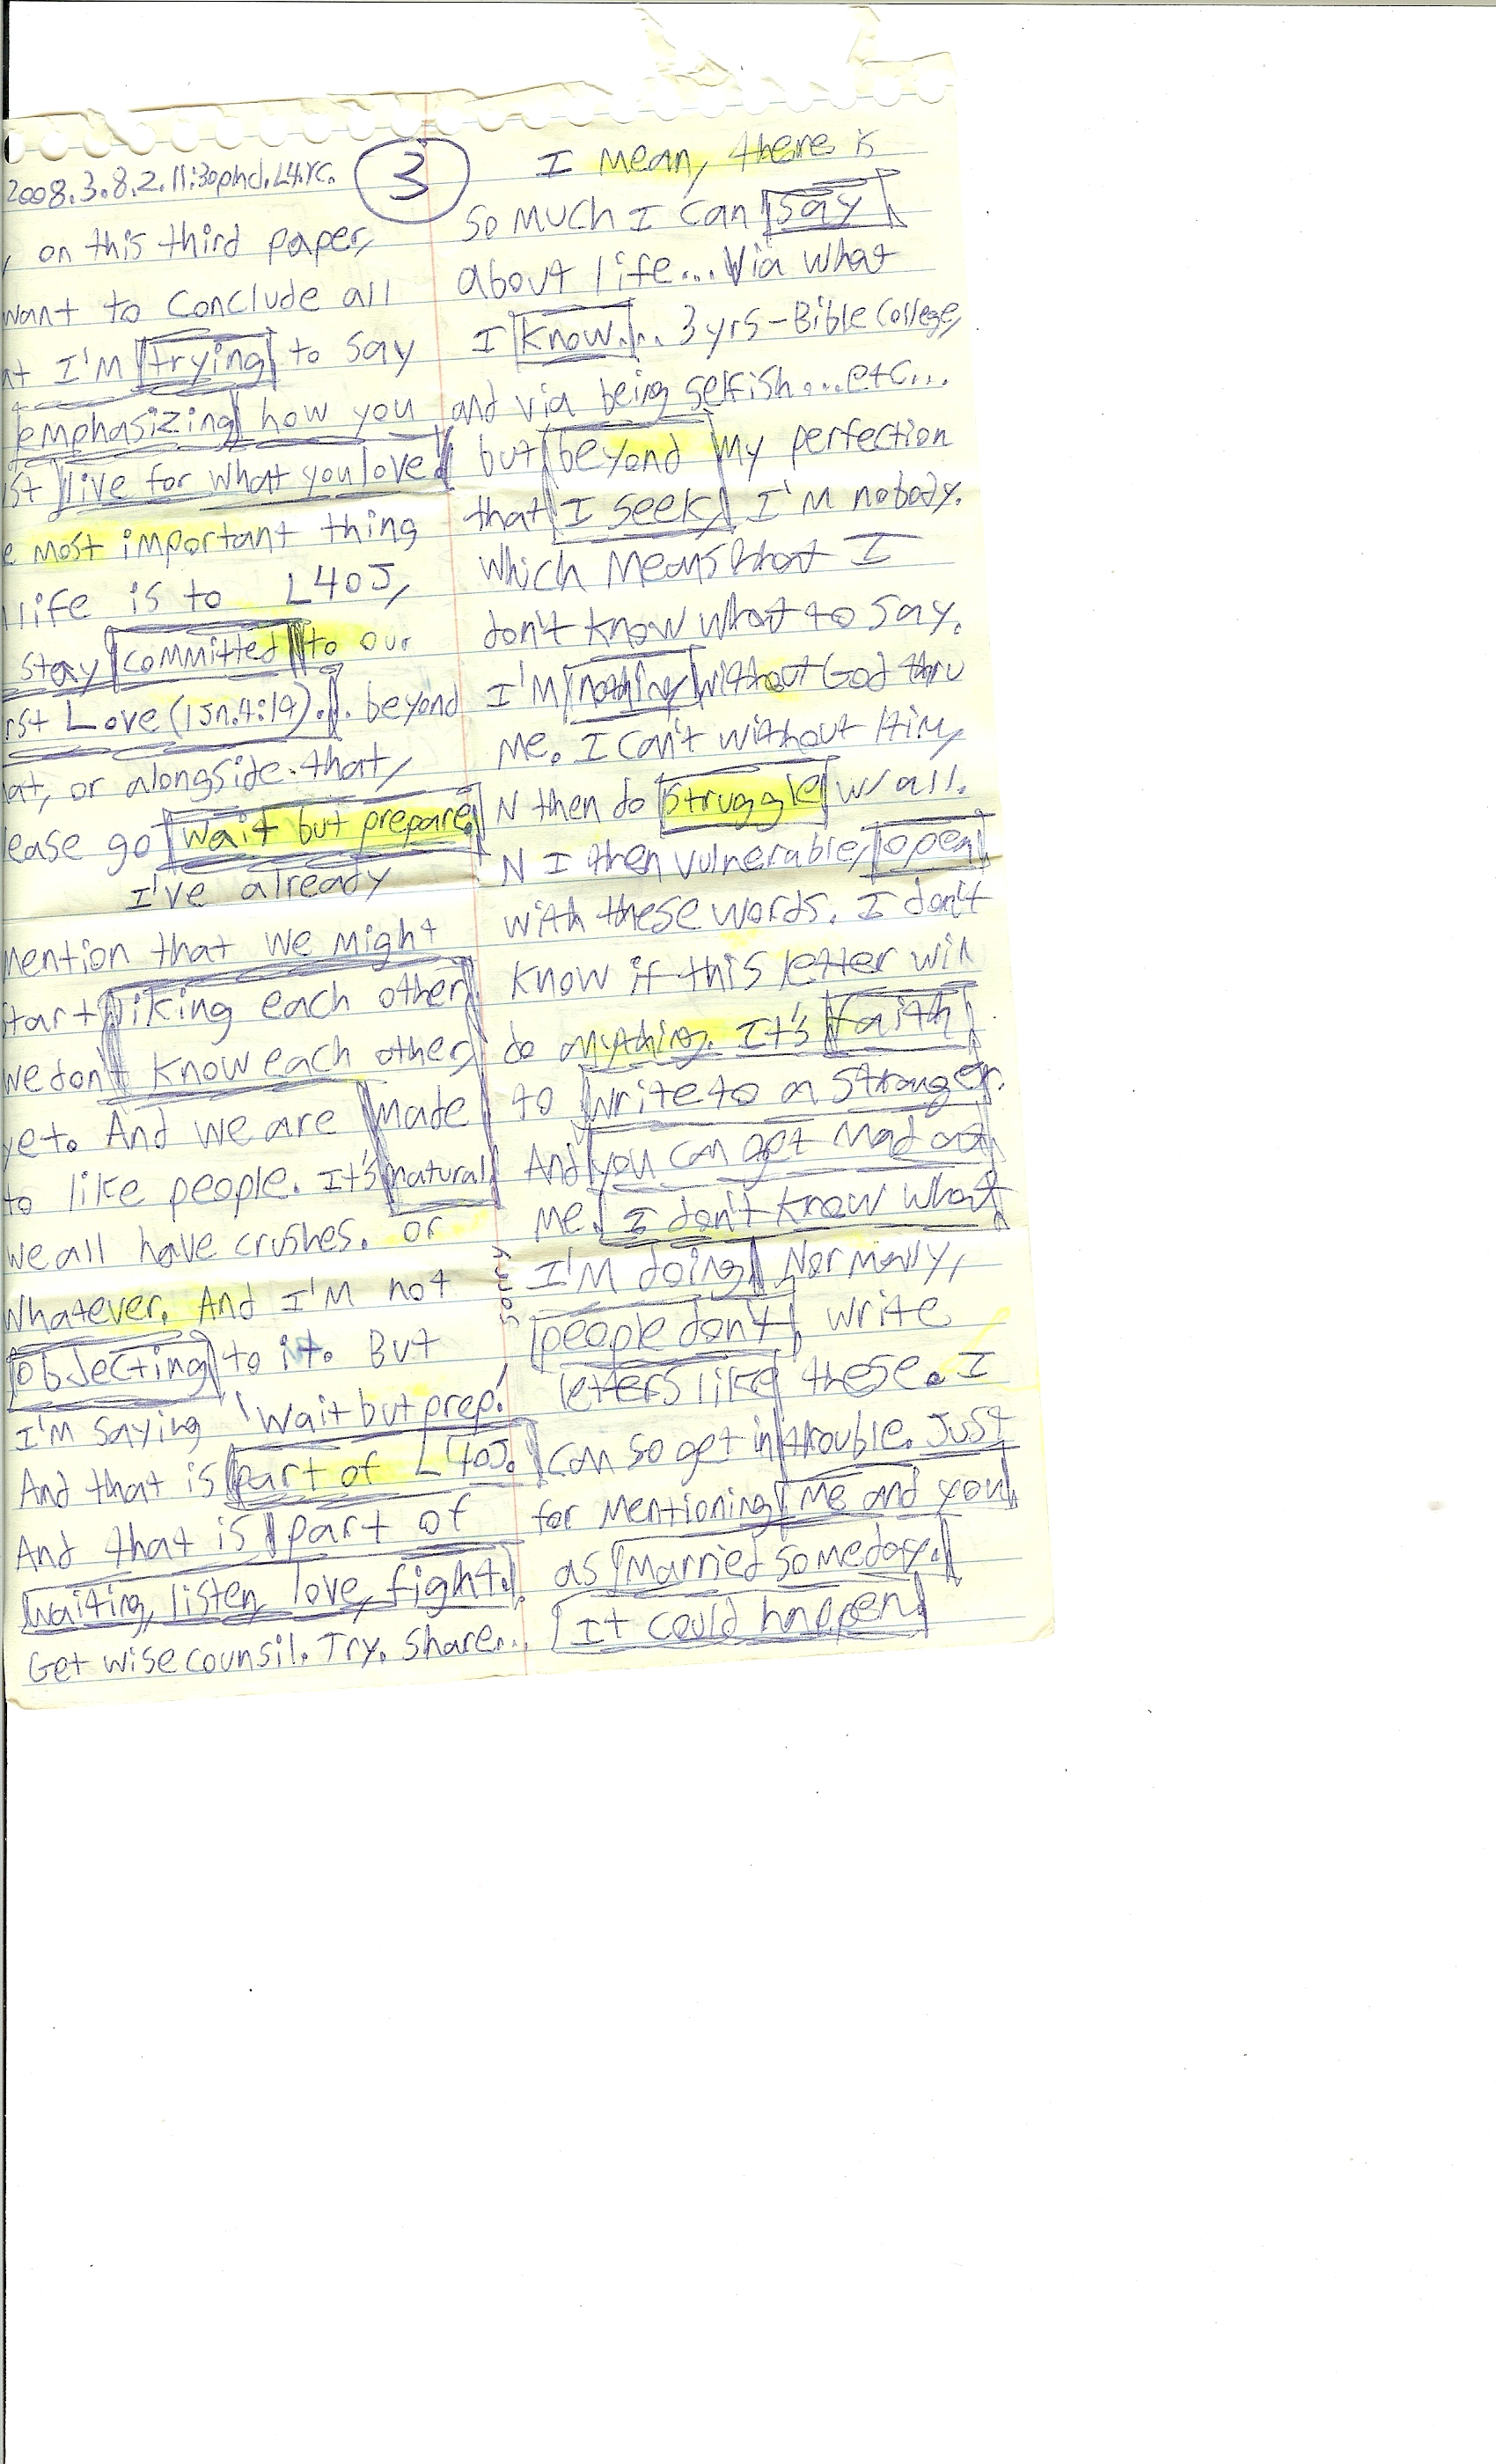 2008.3.8.2.11:30pmd.L4.YC.
3
, on this third paper,
want to conclude all
at I'm trying to say
emphasizing how you
st live for what you love!
e most important thing
life is to L4OJ,
stay committed to our
rst Love (1Jn.4:19)... beyond
at, or alongside that,
ease go wait but prepare.
I've already
mention that we might
start liking each other.
we don't know each other,
yet. And we are made
to like people. It's natural.
we all have crushes. or
whatever. And I'm not
objecting to it. But
I'm saying 'wait but prep.'
And that is part of L4OJ.
And that is part of
waiting, listen, love, fight.
Get wise counsil. Try. Share...
I mean, there is
so much I can say
about life... Via what
I know... 3 yrs-Bible College,
and via being selfish...etc...
but beyond my perfection
that I seek, I'm nobody.
which means that I
don't know what to say.
I'm nothing without God thru
me. I can't without Him,
N then do struggle w/ all.
N I then vulnerable, open
with these words. I don't
know if this letter will
do anything. It's faith
to write to a stranger.
And you can get mad at
me. I don't know what
I'm doing. Normally,
people don't write
letters like these. I
can so get in trouble. Just
for mentioning me and you
as married someday.
It could happen.